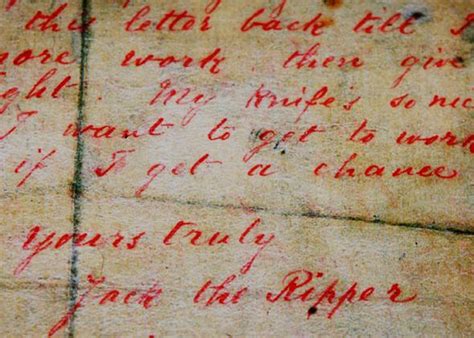 this letter back till I
more work then give
ght. My knife's so nice
I want to get to work
if I get a chance
yours truly
Jack the Ripper